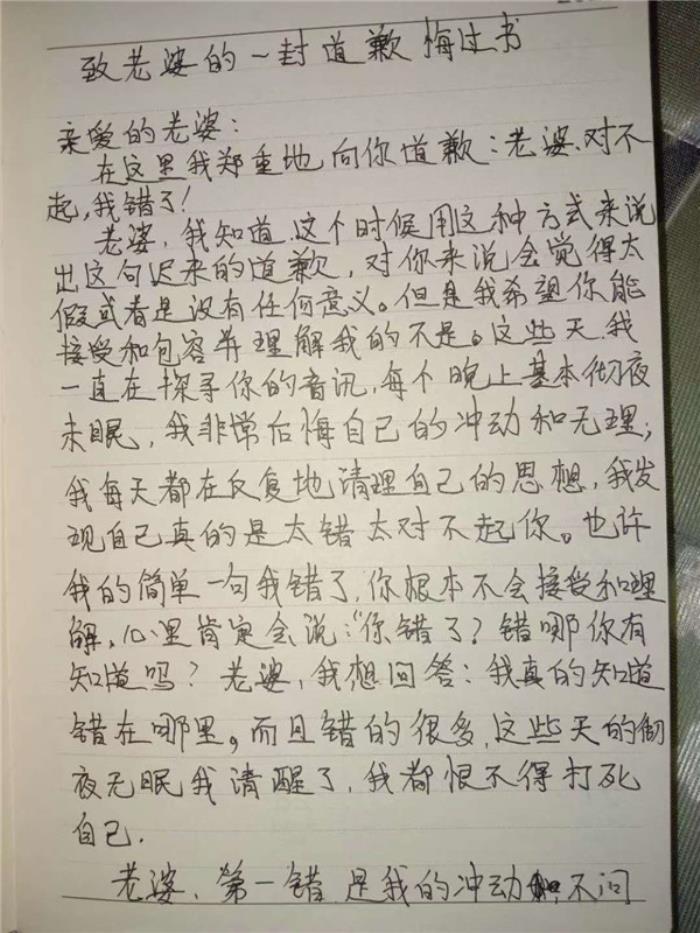 致老婆的一封道歉悔过书
亲爱的老婆：
在这里我郑重地向你道歉：老婆、对不
起，我错了！
老婆，我知道、这个时候用这种方式来说
出这句迟来的道歉，对你来说会觉得太
假或者是没有任何意义。但是我希望你能
接受和包容并理解我的不是。这些天、我
一直在探寻你的音讯，每个晚上基本彻夜
未眠，我非常后悔自己的冲动和无理；
我每天都在反复地清理自己的思想，我发
现自己真的是太错太对不起你。也许
我的简单一句我错了，你根本不会接受和理
解、心里肯定会说：“你错了？错哪你有
知道吗？老婆，我想回答：我真的知道
错在哪里。而且错的很多、这些天的彻
夜无眠我清醒了、我都恨不得打死
自己.
老婆、第一错是我的冲动 不问